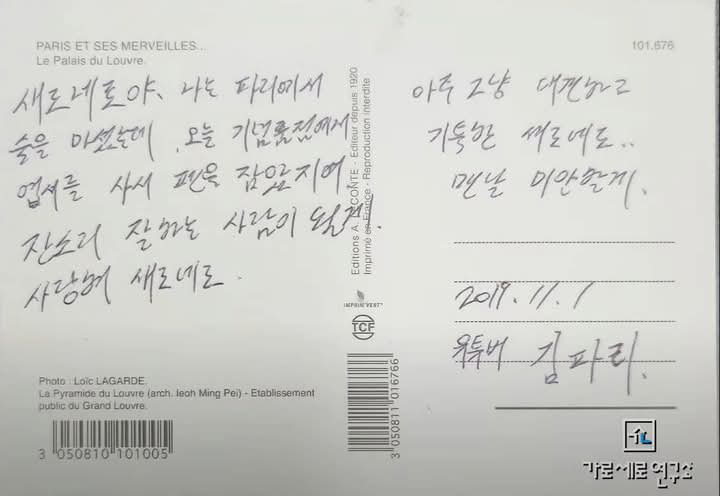 PARIS ET SES MERVEILLES...
Le Palais du Louvre.
101.676
새로네로야. 나는 파리에서
술을 마셨는데, 오늘 기념품점에서
엽서를 사서 펜을 잡았지여.
잔소리 잘하는 사람이 될게.
사랑해 새로네로.
아주 그냥 대견하고
기특한 새로네로..
맨날 미안할게.
2019.11.1
유튜버 김파리.
Editions A. LECONTE - Editeur depuis 1920
Imprimé en France - Reproduction interdite
IMPRIM'VERT®
TCF
Photo : Loïc LAGARDE.
La Pyramide du Louvre (arch. Ieoh Ming Pei) - Etablissement
public du Grand Louvre.
3 050810 101005
3 050811 016766
가로세로연구소